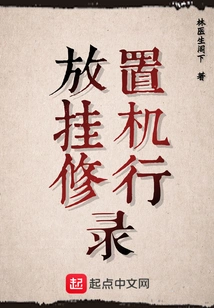 林医生阁下
放置
挂机
修行
录
起 起点中文网